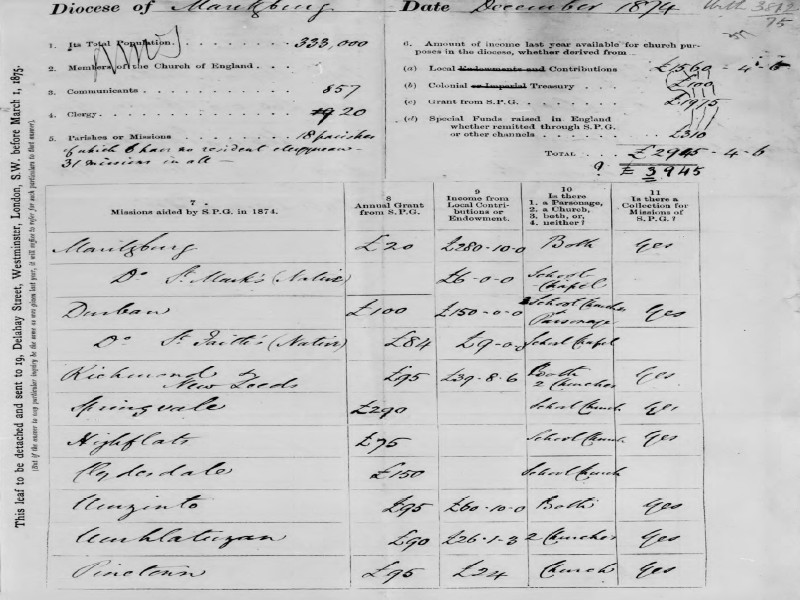 Diocese of Maritzburg Date December 1874
1. Its Total Population 333,000
2. Members of the Church of England
3. Communicants 857
4. Clergy 19 20
5. Parishes or Missions 18 parishes
of which 6 have no resident clergyman
31 missions in all —
6. Amount of income last year available for church purposes
in the diocese, whether derived from—
(a) Local Endowments and Contributions £1560-4-6
(b) Colonial or Imperial Treasury £100
(c) Grant from S.P.G. £1975
(d) Special Funds raised in England
whether remitted through S.P.G.
or other channels £310
TOTAL £2945-4-6
? £3945
This leaf to be detached and sent to 19, Delahay Street, Westminster, London, S.W. before March 1, 1875.
(But if the answer to any particular inquiry be the same as was given last year, it will suffice to refer for such particulars to that answer).
7 Missions aided by S.P.G. in 1874.
8 Annual Grant from S.P.G.
9 Income from Local Contributions or Endowment.
10 Is there 1. a Parsonage, 2. a Church, 3. both, or, 4. neither?
11 Is there a Collection for Missions of S.P.G.?
Maritzburg £20 £280-10-0 Both Yes
Do St. Mark's (Native) £6-0-0 School Chapel
Durban £100 £150-0-0 School Churches & Parsonage Yes
Do St. Faith's (Native) £84 £9-0-0 School Chapel
Richmond & New Leeds £95 £39-8-6 Both 2 Churches Yes
Springvale £290 School Church Yes
Highflats £75 School Church Yes
Clydesdale £150 School Church
Umzinto £95 £60-10-0 Both Yes
Umhlatuzan £90 £26-1-3 2 Churches Yes
Pinetown £95 £24 Church Yes